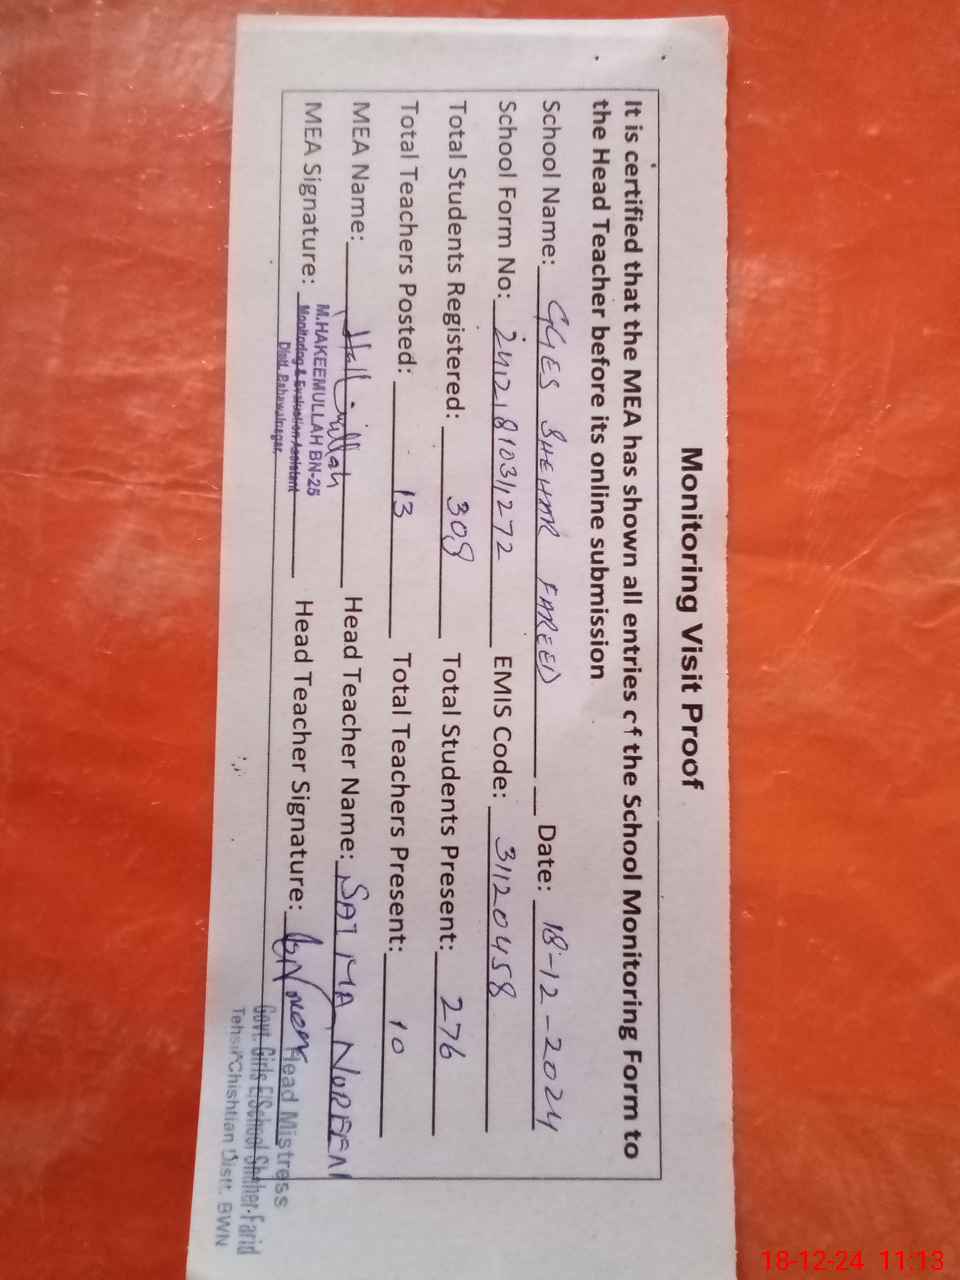 Monitoring Visit Proof
It is certified that the MEA has shown all entries of the School Monitoring Form to
the Head Teacher before its online submission
School Name: GGES SHEHAR FAREED Date: 18-12-2024
School Form No: 24121810311272 EMIS Code: 31120458
Total Students Registered: 308 Total Students Present: 276
Total Teachers Posted: 13 Total Teachers Present: 10
MEA Name: Head Teacher Name: SALMA NOREEN
MEA Signature: Head Teacher Signature:
M.HAKEEMULLAH BN-25
Monitoring & Evaluation Assistant
Distt. Bahawalnagar
Head Mistress
Govt. Girls E/School Shaher-Farid
Tehsil Chishtian Distt. BWN
18-12-24 11:13